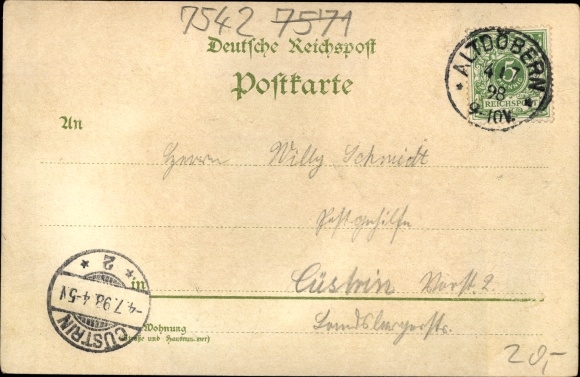 7542 7571
Deutsche Reichspost
Postkarte
An
ALTDÖBERN
4 7
98
9-10V.
5
REICHSPOST
Herrn Willy Schmidt
Postgehilfe
in Cüstrin Vorst. 2.
Landsbergerstr.
Wohnung
(Straße und Hausnummer)
CÜSTRIN
-4.7.98. 4-5N
* 2 *
20,-